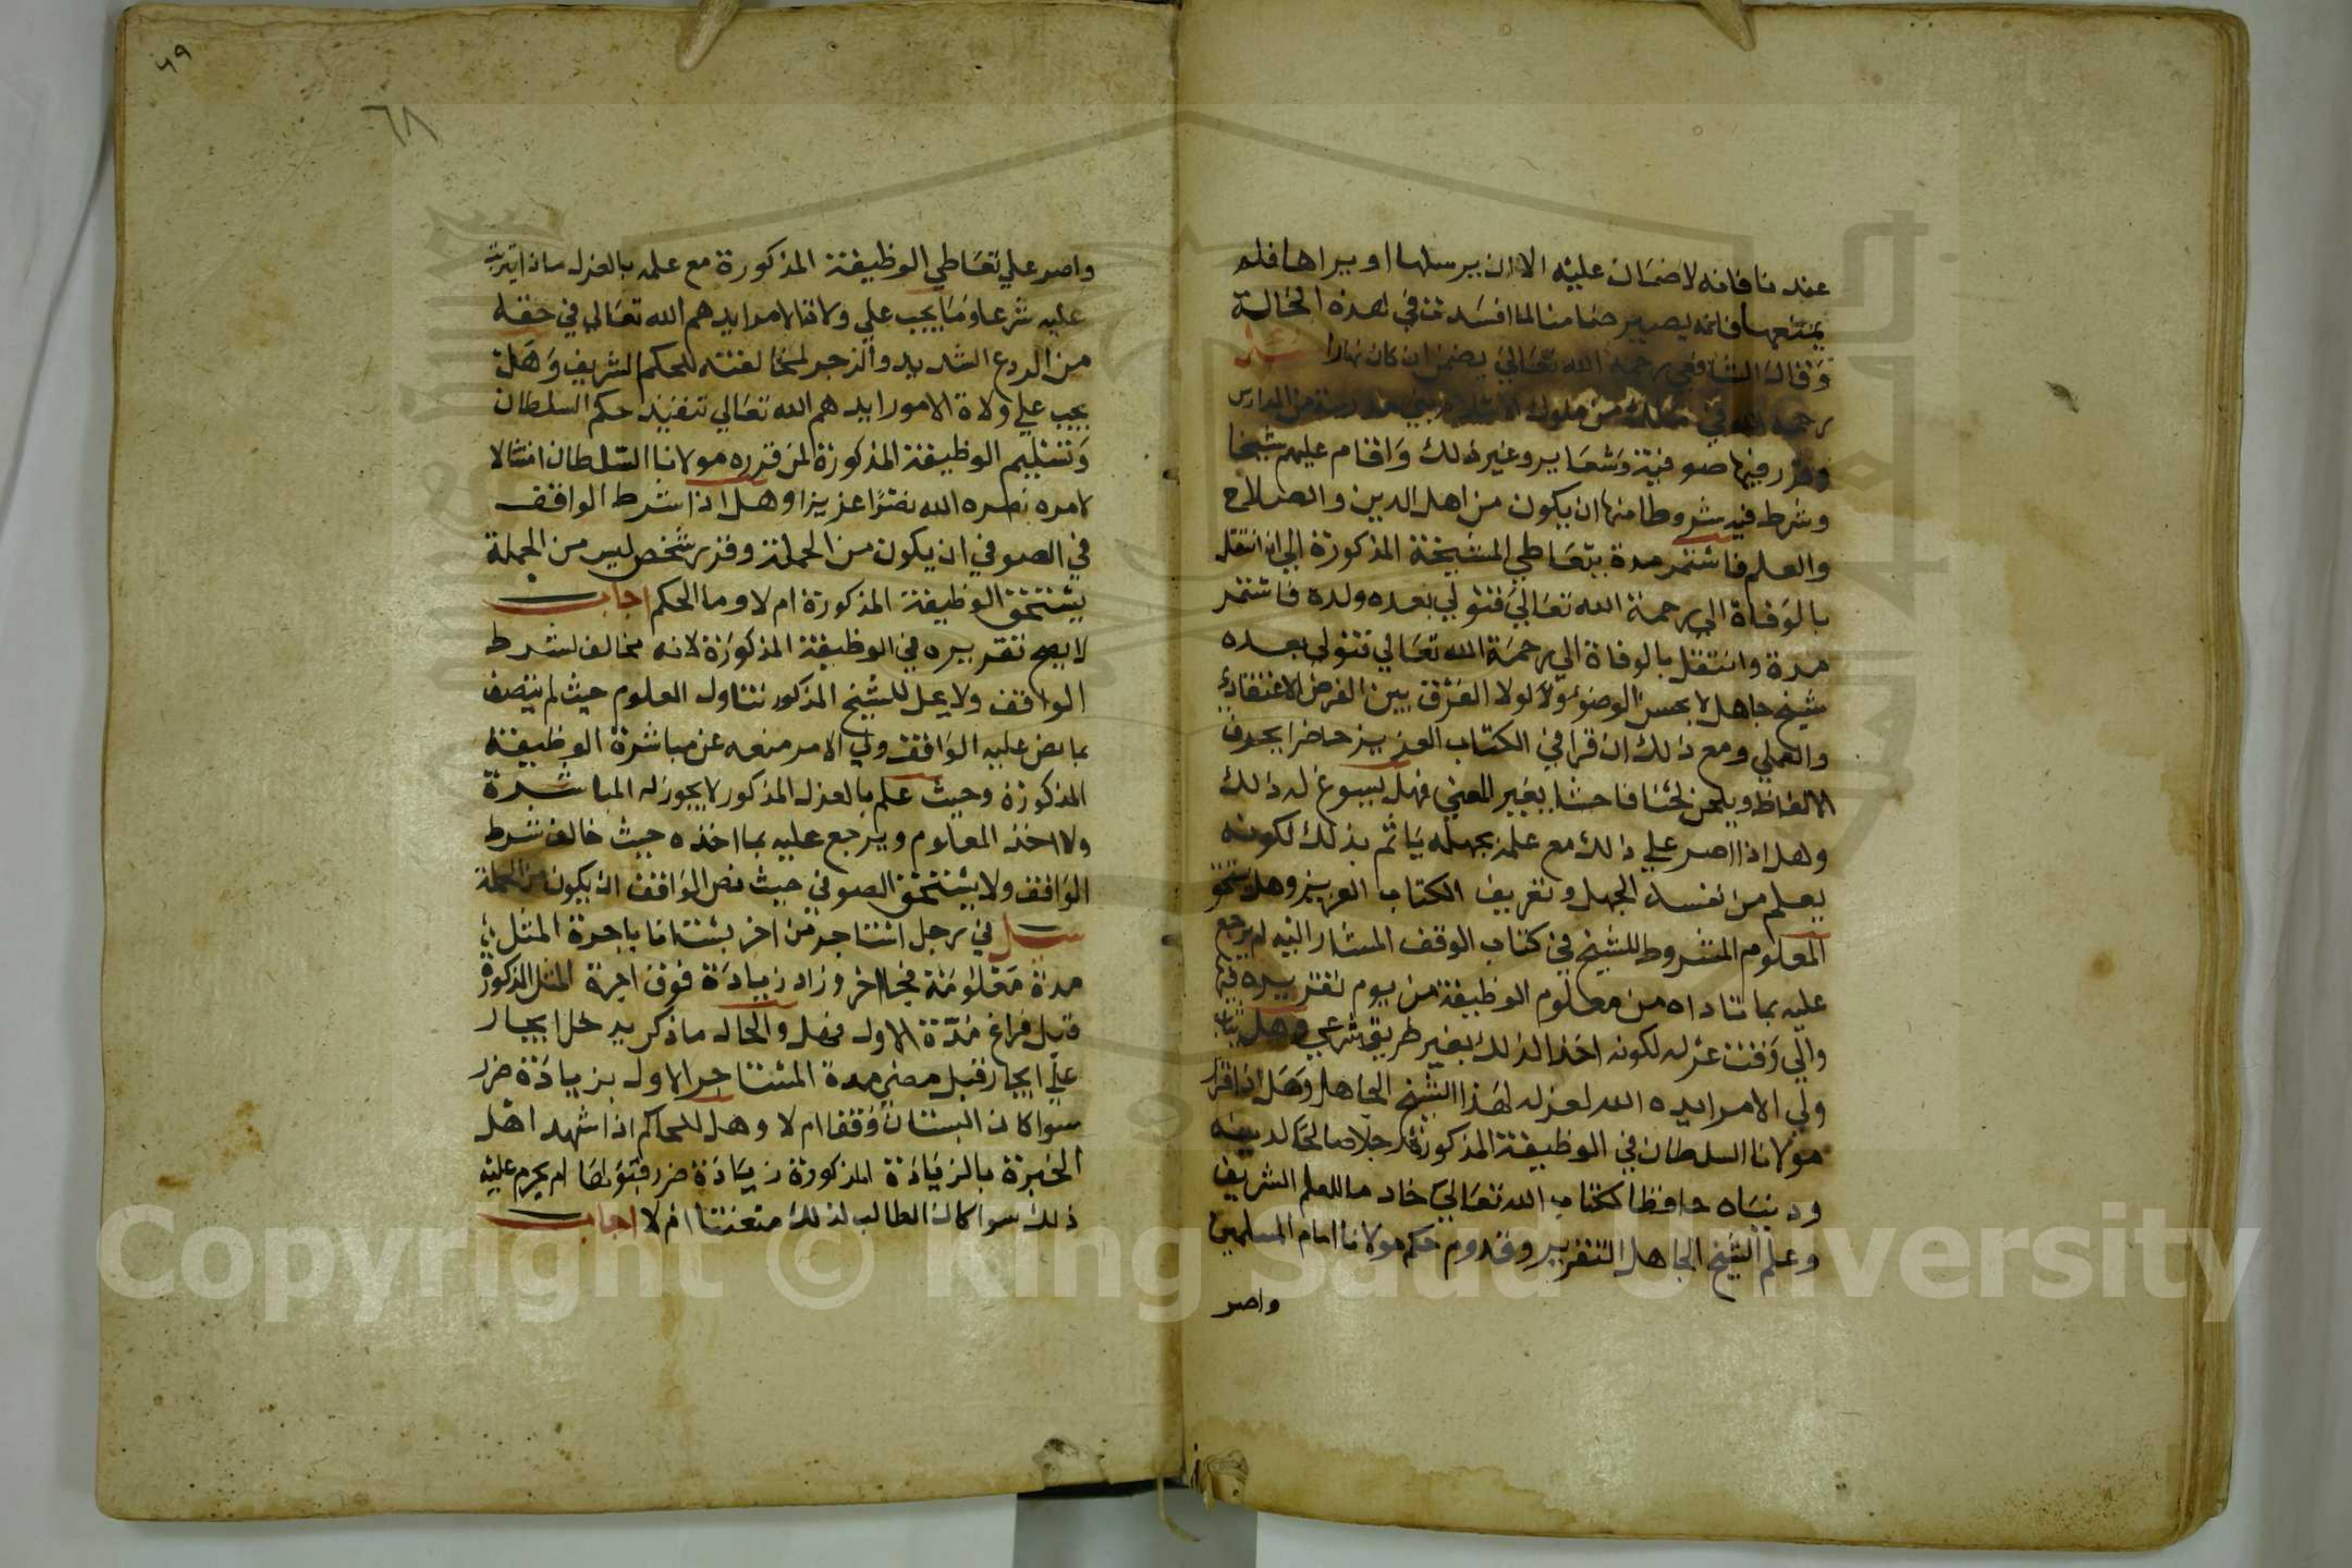 عندنا فانه لا ضمان عليه الا ان يرسلها او يراها فلم
يمنعها فانه يصير ضامنا لما افسدت في هذه الحالة
وقال الشافعي رحمه الله تعالى يضمن ان كان نهارا سئل
رحمه الله في ملك من ملوك الاسلام بنى مدرسة من المدارس
وقرر فيها صوفية وشعاير وغير ذلك واقام عليهم شيخا
وشرط فيه شروطا منها ان يكون من اهل الدين والصلاح
والعلم فاستمر مدة يتعاطي المشيخة المذكورة الي ان انتقل
بالوفاة الي رحمة الله تعالي فتولي بعده ولده فاستمر
مدة وانتقل بالوفاة الي رحمة الله تعالي فتولي بعده
شيخ جاهل لا يحسن الوضوء ولا لولا الفرق بين الفرض الاعتقادي
والعملي ومع ذلك ان قرا في الكتاب العزيز حاضرا يحرف
الالفاظ ويلحن لحنا فاحشا يغير المعني فهل يسوغ له ذلك
وهل اذا اصر علي ذلك مع علمه بجهله ياثم بذلك لكونه
يعلم من نفسه الجهل وتحريف الكتاب العزيز وهل يستحق
المعلوم المشروط للشيخ في كتاب الوقف المشار اليه ام يرجع
عليه بما تناوله من معلوم الوظيفة من يوم تقريره فيها
والي وقت عزله لكونه اخذ لذلك بغير طريق شرعي وهل يثاب
ولي الامر ايده الله لعزله لهذا الشيخ الجاهل وهل اذا قرر
مولانا السلطان في الوظيفة المذكورة رجلا صالحا لدينه
ودنياه حافظا لكتاب الله تعالي خادما للعلم الشريف
وعلم الشيخ الجاهل التقرير وقدوم حكم مولانا امام المسلمين
واصر
٦٩
٦٨
واصر علي تعاطي الوظيفة المذكورة مع علمه بالعزل ماذا يترتب
عليه شرعا وما يجب علي ولاة الامر ايدهم الله تعالي في حقه
من الردع الشديد والزجر لمخالفته للحكم الشريف وهل
يجب علي ولاة الامور ايدهم الله تعالي تنفيذ حكم السلطان
وتسليم الوظيفة المذكورة لمن قرره مولانا السلطان امتثالا
لامره نصره الله نصرا عزيزا وهل اذا شرط الواقف
في الصوفي ان يكون من الحملة وقرر شخص ليس من الحملة
يستحق الوظيفة المذكورة ام لا وما الحكم اجاب
لا يصح تقريره في الوظيفة المذكورة لانه مخالف لشرط
الواقف ولا يحل للشيخ المذكور تناول المعلوم حيث لم يتصف
بما نص عليه الواقف ولي الامر منعه عن مباشرة الوظيفة
المذكورة وحيث علم بالعزل المذكور لا يجوز له المباشرة
ولا اخذ المعلوم ويرجع عليه بما اخذه حيث خالف شرط
الواقف ولا يستحق الصوفي حيث نص الواقف ان يكون من الحملة
سئل في رجل استاجر من اخر بستانا باجرة المثل
مدة معلومة فجا اخر وزاد زيادة فوق اجرة المثل المذكورة
قبل فراغ مدة الاول فهل والحال ما ذكر يدخل ايجار
علي ايجار قبل مضي مدة المستاجر الاول بزيادة ضرر
سوا كان البستان وقفا ام لا وهل للحاكم اذا شهد اهل
الخبرة بالزيادة المذكورة زيادة ضرر قبولها ام يحرم عليه
ذلك سوا كان الطالب لذلك متعنتا ام لا اجاب
Copyright © King Saud University